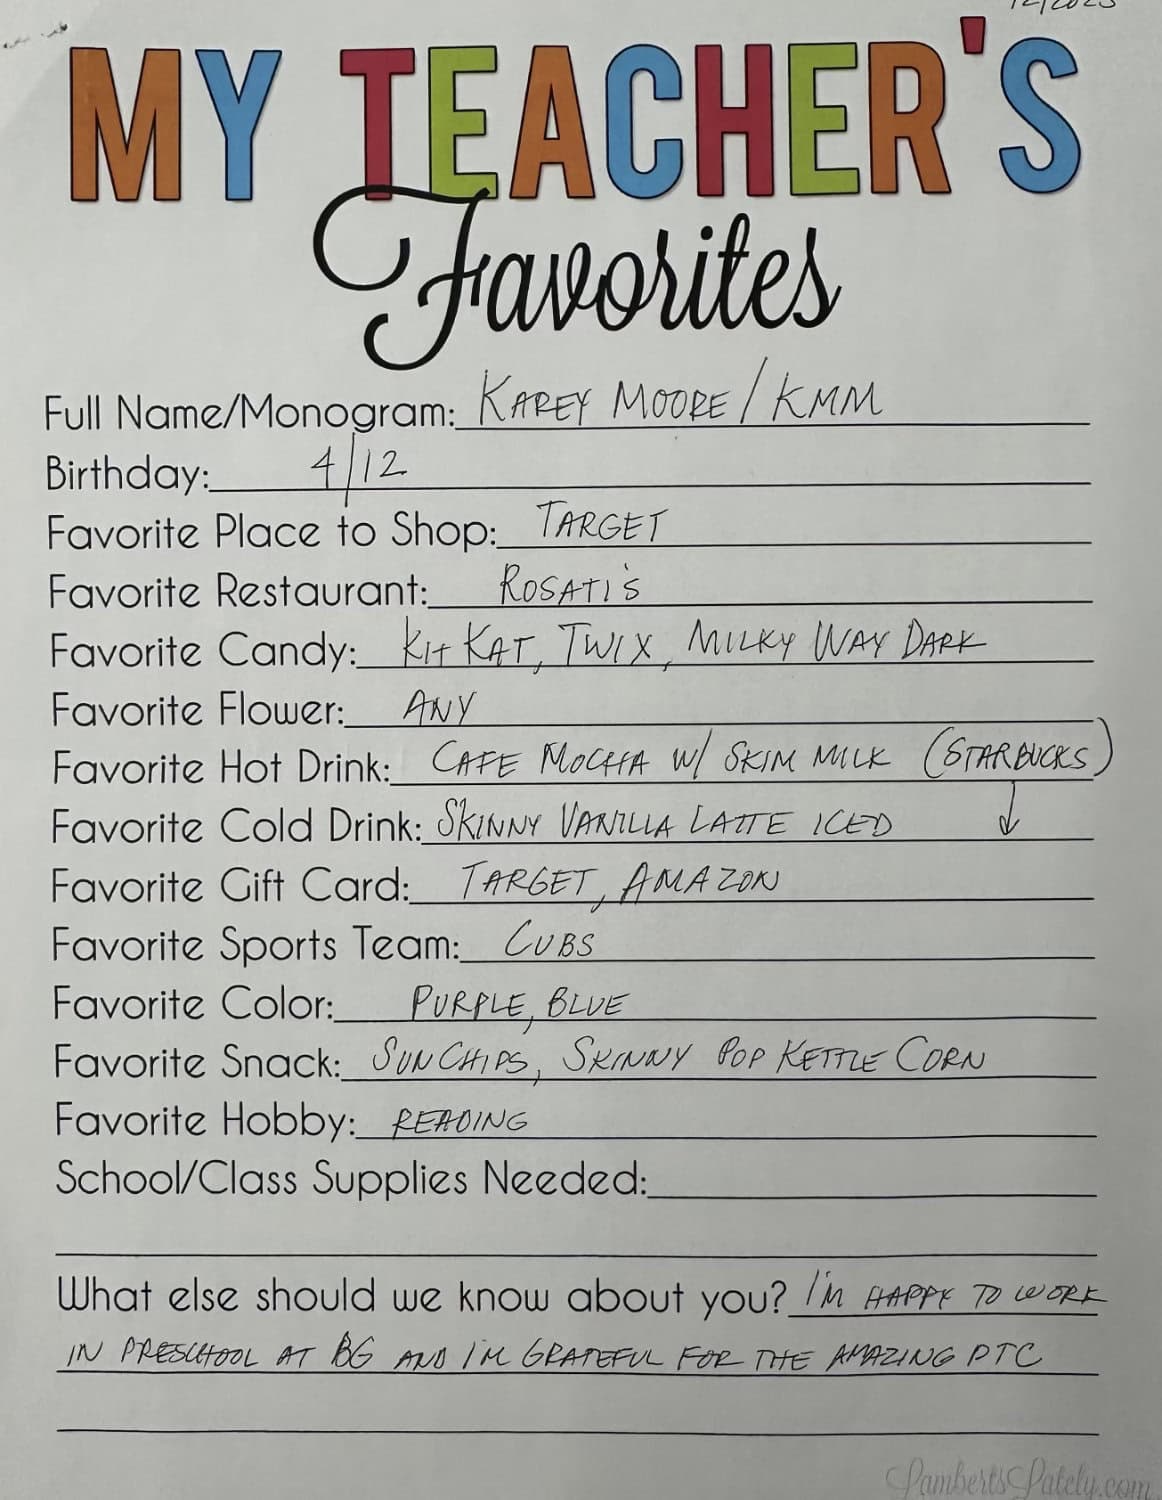 12/2023
MY TEACHER'S
Favorites
Full Name/Monogram: KAREY MOORE / KMM
Birthday: 4/12
Favorite Place to Shop: TARGET
Favorite Restaurant: ROSATI'S
Favorite Candy: KIT KAT, TWIX, MILKY WAY DARK
Favorite Flower: ANY
Favorite Hot Drink: CAFE MOCHA W/ SKIM MILK (STARBUCKS)
Favorite Cold Drink: SKINNY VANILLA LATTE ICED ↓
Favorite Gift Card: TARGET, AMAZON
Favorite Sports Team: CUBS
Favorite Color: PURPLE, BLUE
Favorite Snack: SUN CHIPS, SKINNY POP KETTLE CORN
Favorite Hobby: READING
School/Class Supplies Needed:
What else should we know about you? I'M HAPPY TO WORK
IN PRESCHOOL AT BG AND I'M GRATEFUL FOR THE AMAZING PTC
LambertsLately.com